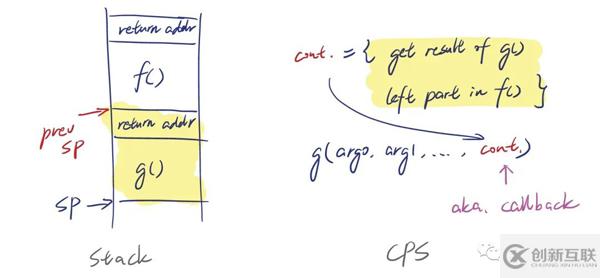 return addr
f()
prev
SP
return addr
g()
SP
Stack
cont. = { get result of g()
left part in f() }
g(arg0, arg1, ...., cont.)
aka. callback
CPS
创新互联
CHUANG XIN HU LIAN